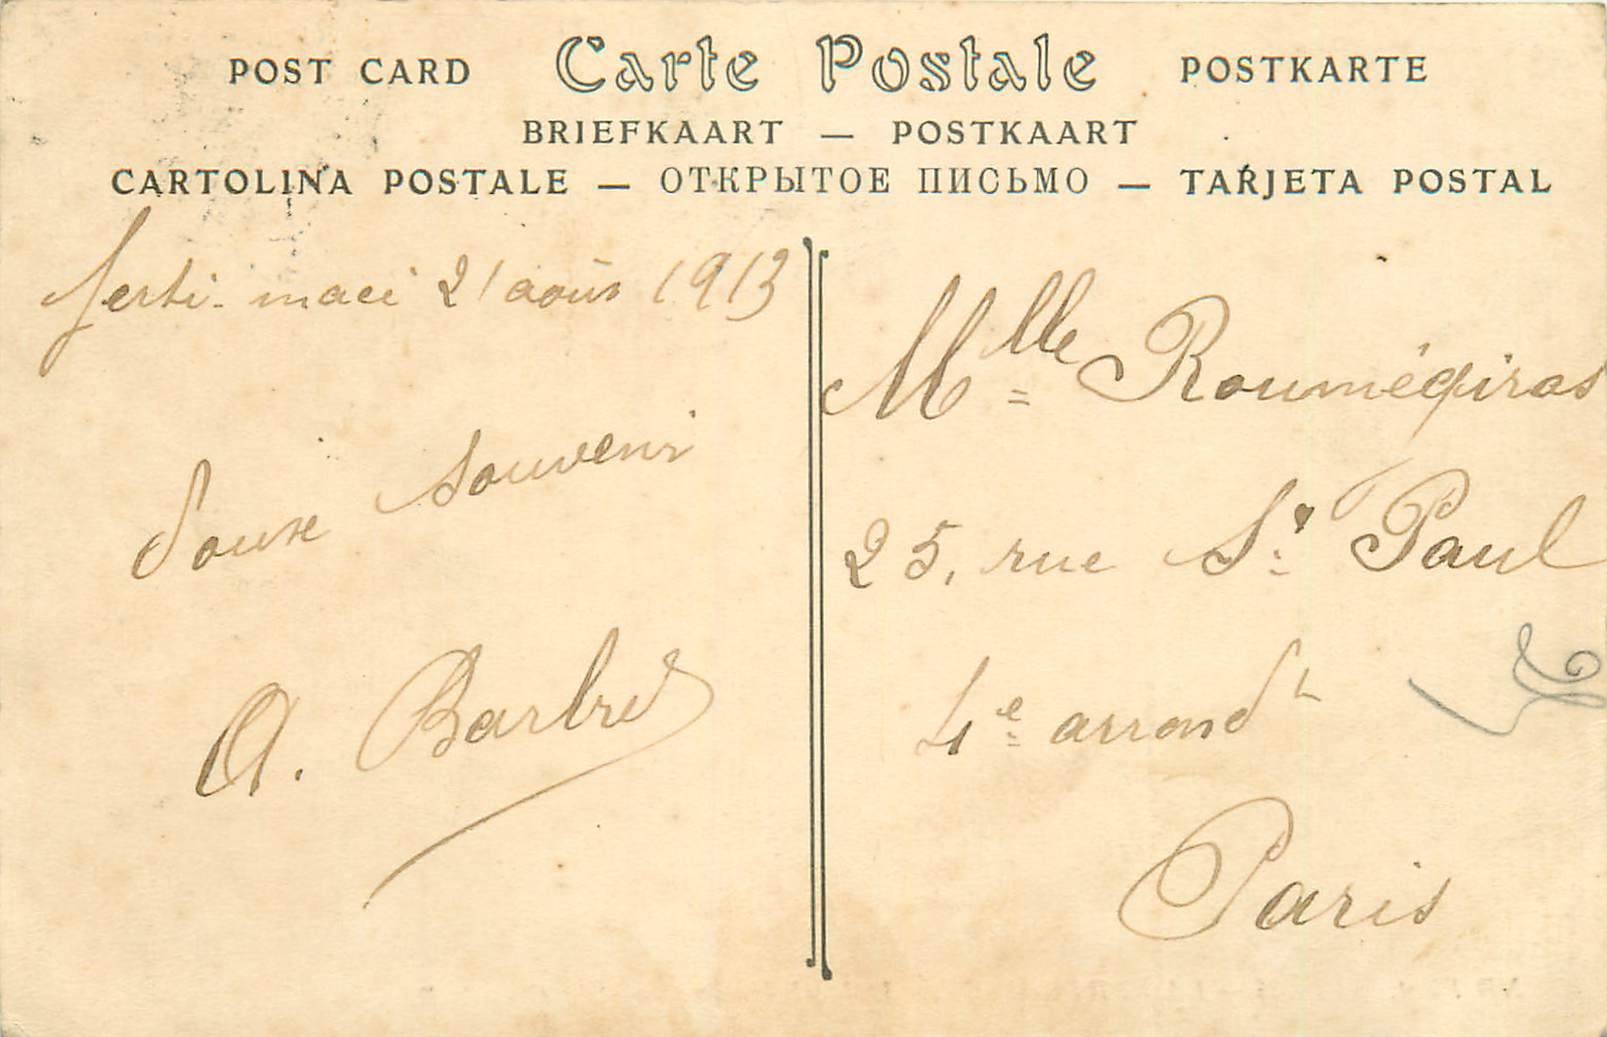 POST CARD Carte Postale POSTKARTE
BRIEFKAART — POSTKAART
CARTOLINA POSTALE — ОТКРЫТОЕ ПИСЬМО — TARJETA POSTAL
ferti-macé 21 août 1913
doux souvenir
A. Barbré
Mlle Roumégiras
25, rue St Paul
4e arrondt
Paris